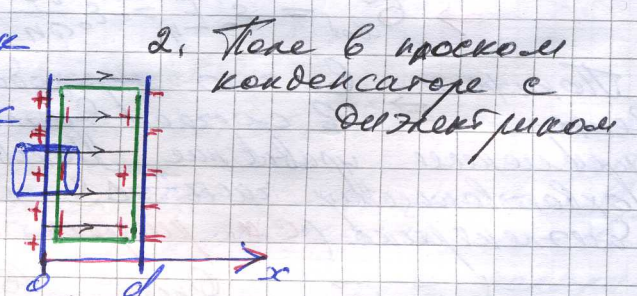 2. Поле в плоском
конденсаторе с
диэлектриком
0 d x